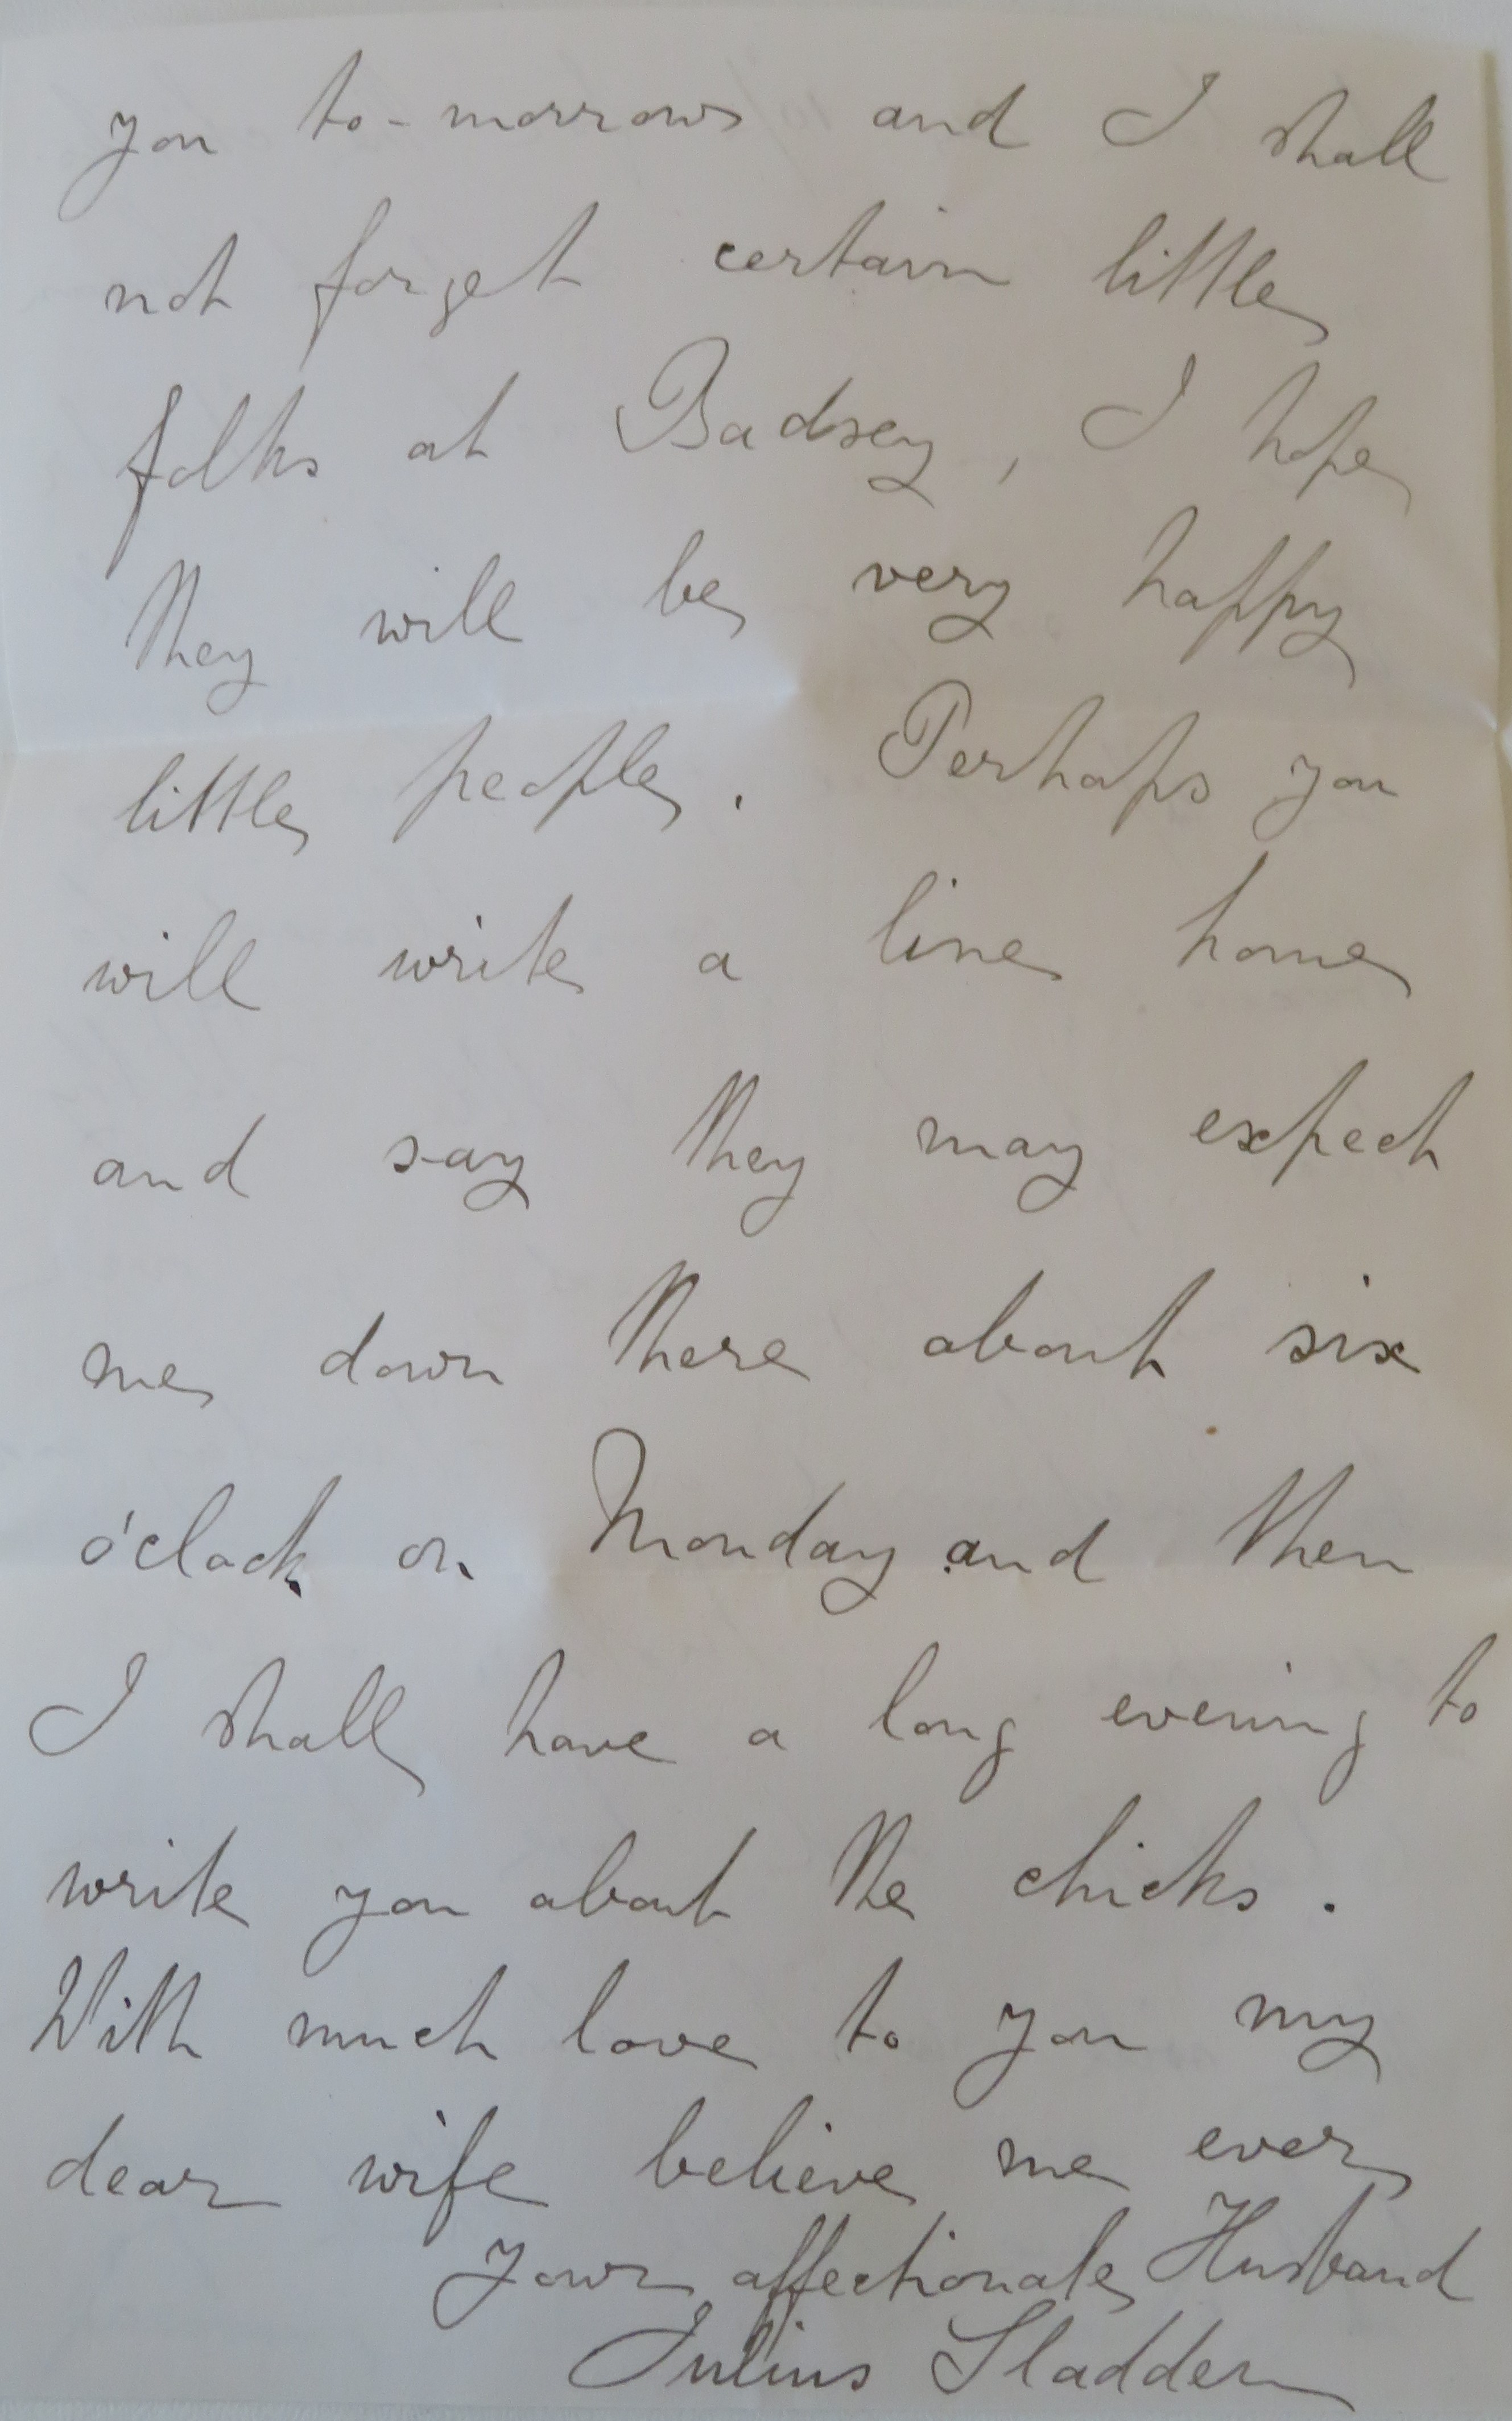 you to-morrow and I shall
not forget certain little
folks at Badsey, I hope
they will be very happy
little people. Perhaps you
will write a line home
and say they may expect
me down there about six
o'clock on Monday and then
I shall have a long evening to
write you about the chicks.
With much love to you my
dear wife believe me ever
Your affectionate Husband
Julius Sladden